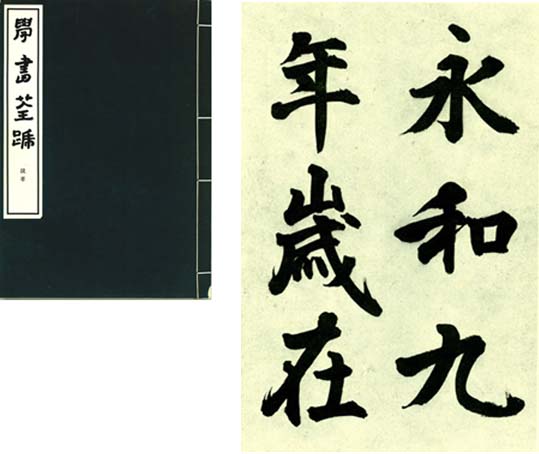 學書荃蹏
永和九
年歲在